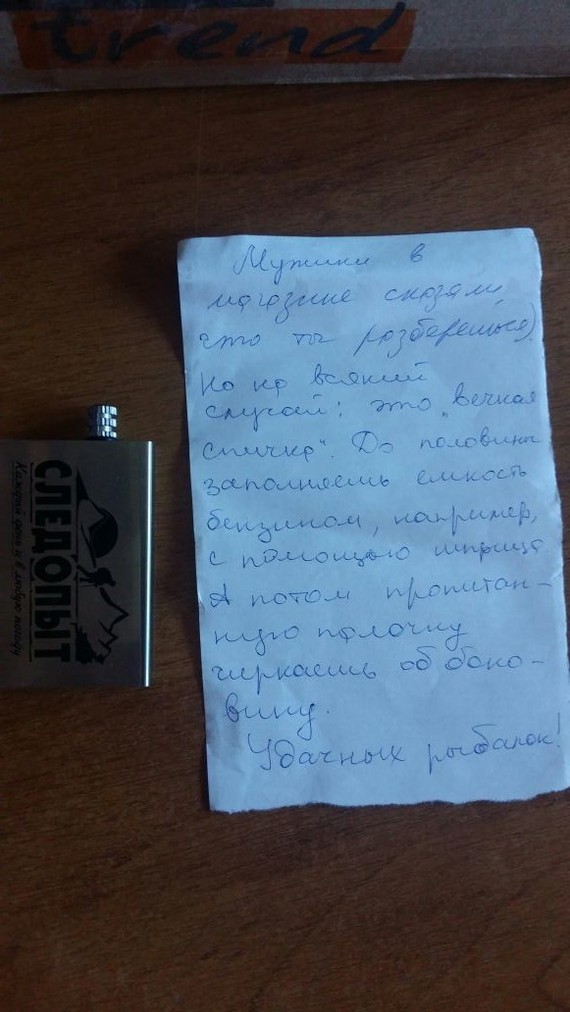 trend
Мужики в
магазине сказали,
что ты разберешься).
Но на всякий
случай: это „вечная
спичка“. До половины
заполняешь емкость
бензином, например,
с помощью шприца
А потом пропитан-
ную палочку
чиркаешь об боко-
вину.
Удачных рыбалок!
СЛЕДОПЫТ
Каждый день и в любую погоду